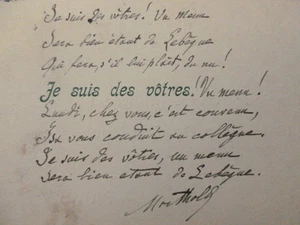 Je suis des vôtres! Vu menu
Sera bien étant de Lebègue
Qui fera, s'il lui plaît, du nu!
Je suis des vôtres! Vu menu!
Lundi, chez vous, c'est convenu,
vous conduit su collègue.
Je suis des vôtres, un menu
Sera bien étant de Lebègue.